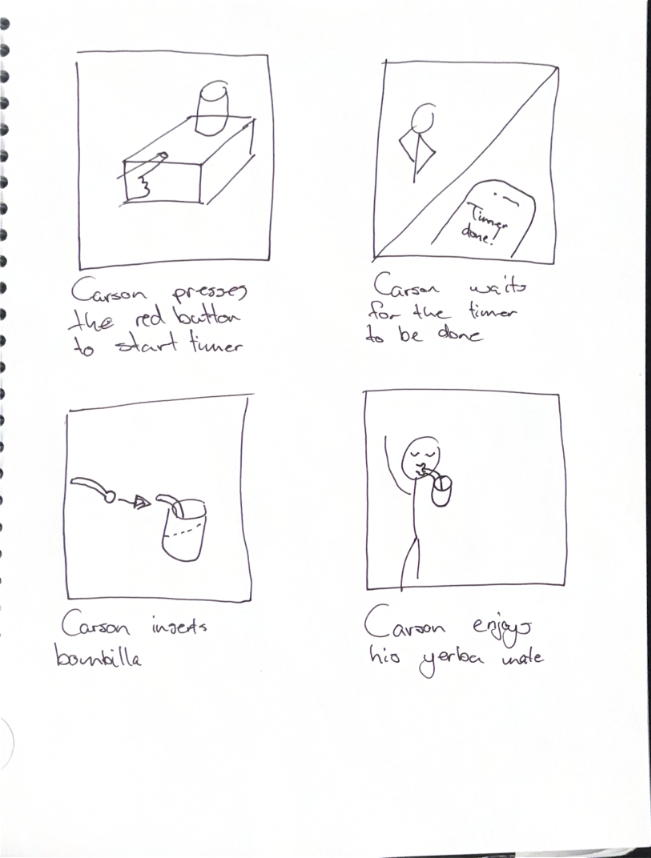 Timer
done!
Carson presses
the red button
to start timer
Carson waits
for the timer
to be done
Carson inserts
bombilla
Carson enjoys
his yerba mate